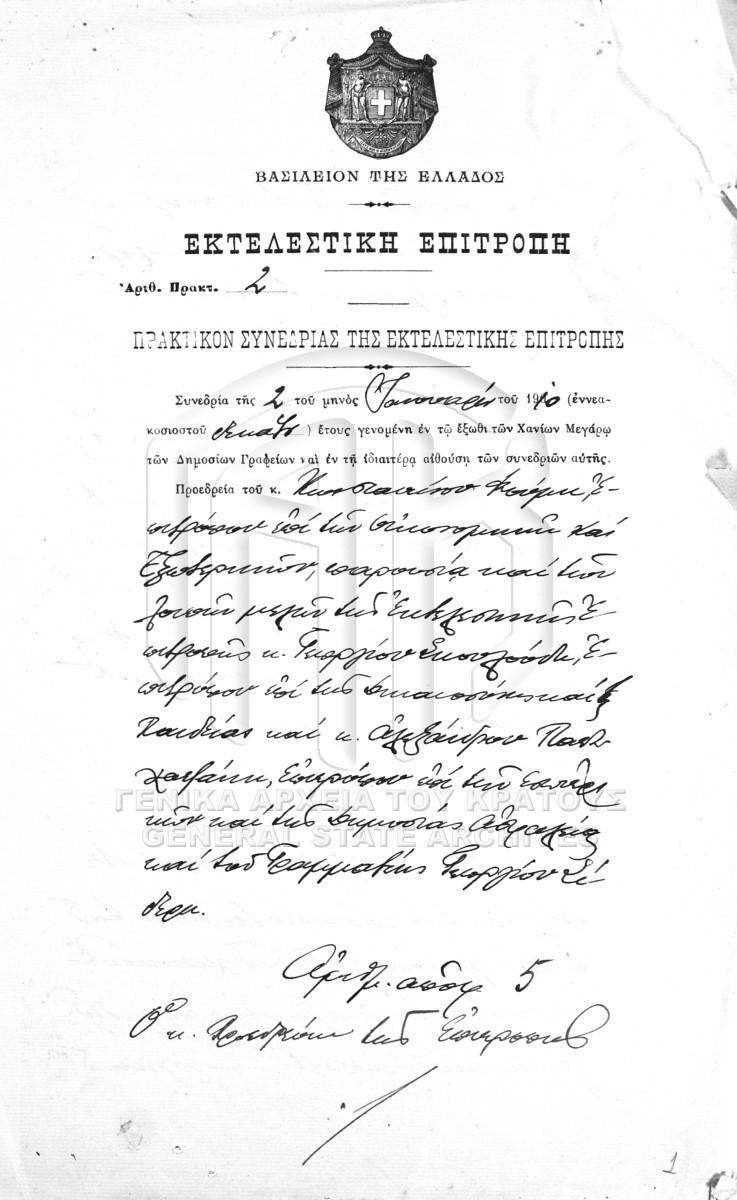 ΒΑΣΙΛΕΙΟΝ ΤΗΣ ΕΛΛΑΔΟΣ
ΕΚΤΕΛΕΣΤΙΚΗ ΕΠΙΤΡΟΠΗ
Ἀριθ. Πρακτ. 2
ΠΡΑΚΤΙΚΟΝ ΣΥΝΕΔΡΙΑΣ ΤΗΣ ΕΚΤΕΛΕΣΤΙΚΗΣ ΕΠΙΤΡΟΠΗΣ
Συνεδρία τῆς 2 τοῦ μηνὸς Ἰανουαρίου τοῦ 1910 (ἐννεα-
κοσιοστοῦ δεκάτου) ἔτους γενομένη ἐν τῷ ἔξωθι τῶν Χανίων Μεγάρῳ
τῶν Δημοσίων Γραφείων καὶ ἐν τῇ ἰδιαιτέρᾳ αἰθούσῃ τῶν συνεδριῶν αὐτῆς.
Προεδρεία τοῦ κ. Κωνσταντίνου Φούμη, Ἐ-
πιτρόπου ἐπὶ τῶν Οἰκονομικῶν καὶ
Ἐξωτερικῶν, παρουσίᾳ καὶ τῶν
λοιπῶν μελῶν τῆς Ἐκτελεστικῆς Ἐ-
πιτροπῆς κ. Γεωργίου Σκουλούδη, Ἐ-
πιτρόπου ἐπὶ τῆς Δικαιοσύνης καὶ
Παιδείας καὶ κ. Ἀλεξάνδρου
Ἐπιτρόπου ἐπὶ τῶν Ἐσωτερι-
κῶν καὶ τῆς Δημοσίας Ἀσφαλείας
ΓΕΝΙΚΑ ΑΡΧΕΙΑ ΤΟΥ ΚΡΑΤΟΥΣ
GENERAL STATE ARCHIVES
καὶ τοῦ Γραμματέως Γεωργίου
Ἀριθ. ἀποφ 5
Ὁ κ. Προεδρεύων τῆς Ἐπιτροπῆς
1